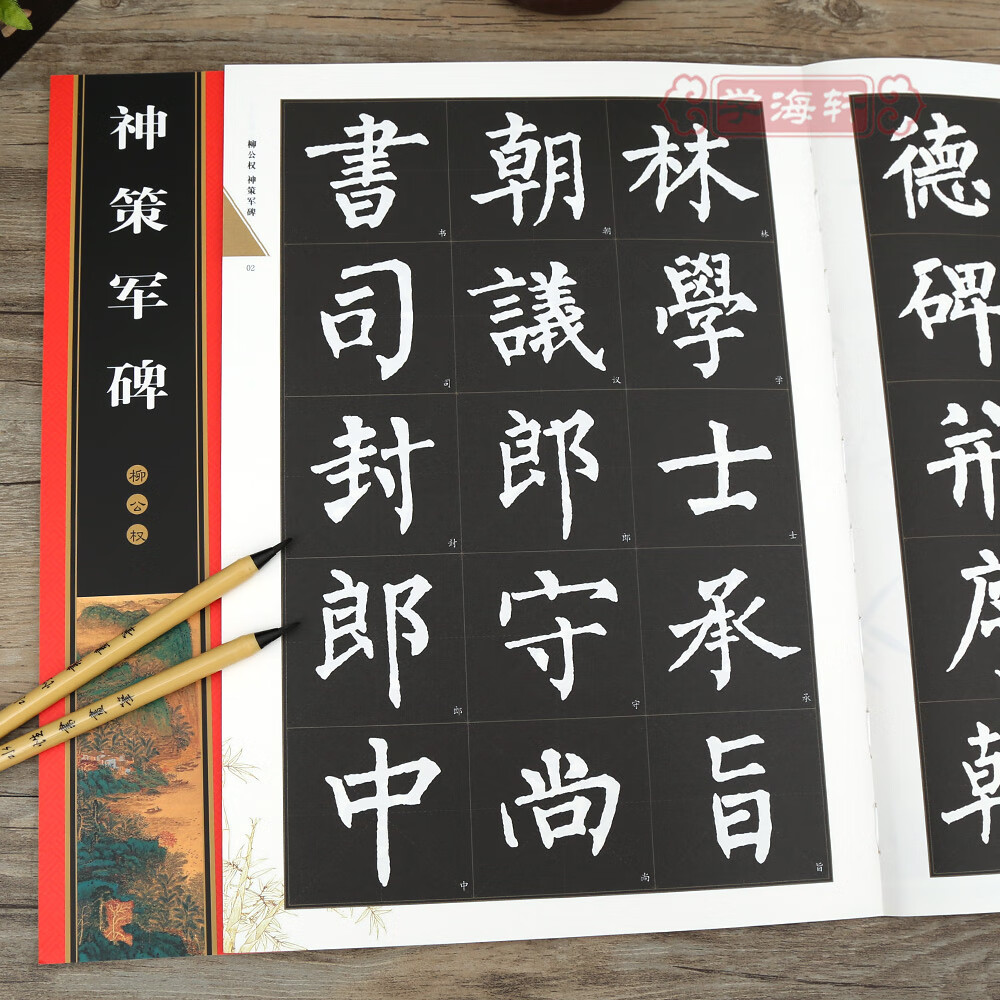 学海轩
神策军碑
柳公权
柳公权 神策军碑
02
林學士承旨
林学士承旨
朝議郎守尚
朝议郎守尚
書司封郎中
书司封郎中
德碑